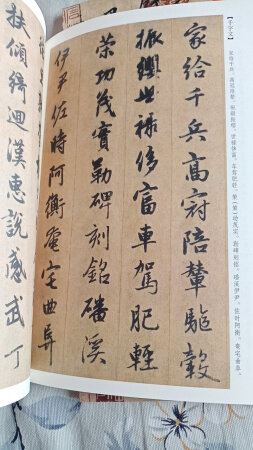 【千字文】
家给千兵，高冠陪辇，驱毂振缨。世禄侈富，车驾肥轻。荣(策)功茂实，勒碑刻铭。磻溪伊尹，佐时阿衡。奄宅曲阜。
家給千兵高冠陪輦驅轂
振纓世祿侈富車駕肥輕
榮功茂實勒碑刻銘磻溪
伊尹佐時阿衡奄宅曲阜
扶傾綺迴漢惠說感武丁